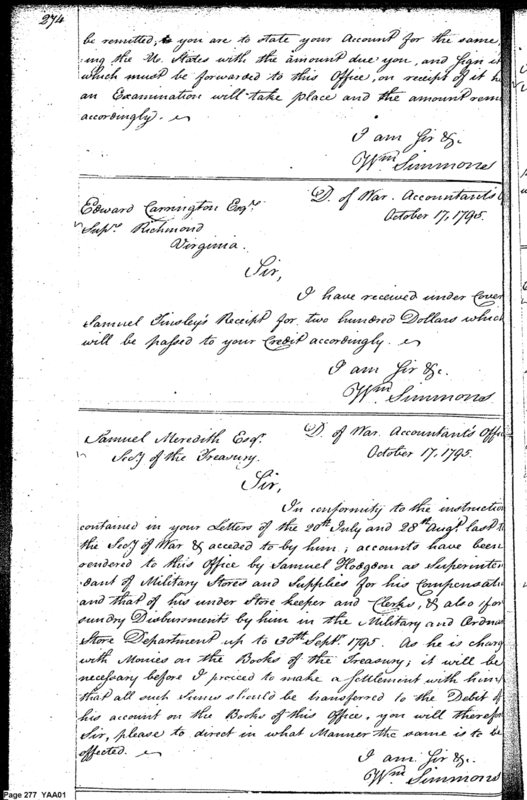 274
be remitted, you are to state your Account for the same,
ing the U. States with the amount due you, and sign it
which must be forwarded to this Office, on receipt of it
an Examination will take place and the amount rem
accordingly.
I am Sir &c.
Wm Simmons
D. of War. Accountant's O
Edward Carrington Esqr.
October 17, 1795.
Supr. Richmond
Virginia.
Sir,
I have received under Cover
Samuel Tinsley's Receipt for two hundred Dollars which
will be passed to your Credit accordingly.
I am Sir &c.
Wm Simmons
Samuel Meredith Esqr. D. of War. Accountant's Offic
Secy of the Treasury. October 17, 1795.
Sir,
In conformity to the instruction
contained in your Letters of the 20th July and 28th Augt. last to
the Secy of War & acceded to by him; accounts have been
rendered to this Office by Samuel Hodgdon as Superinten
dant of Military Stores and Supplies for his Compensatio
and that of his under Store keeper and Clerks, & also for
sundry Disbursments by him in the Military and Ordnan
Store Department up to 30th Sept. 1795. As he is charg
with Monies on the Books of the Treasury; it will be
necessary before I proceed to make a settlement with him
that all such Sums should be transferred to the Debit of
his account on the Books of this Office, you will therefor
Sir, please to direct in what Manner the same is to be
effected.
I am Sir &c.
Wm Simmons
Page 277 YAA01